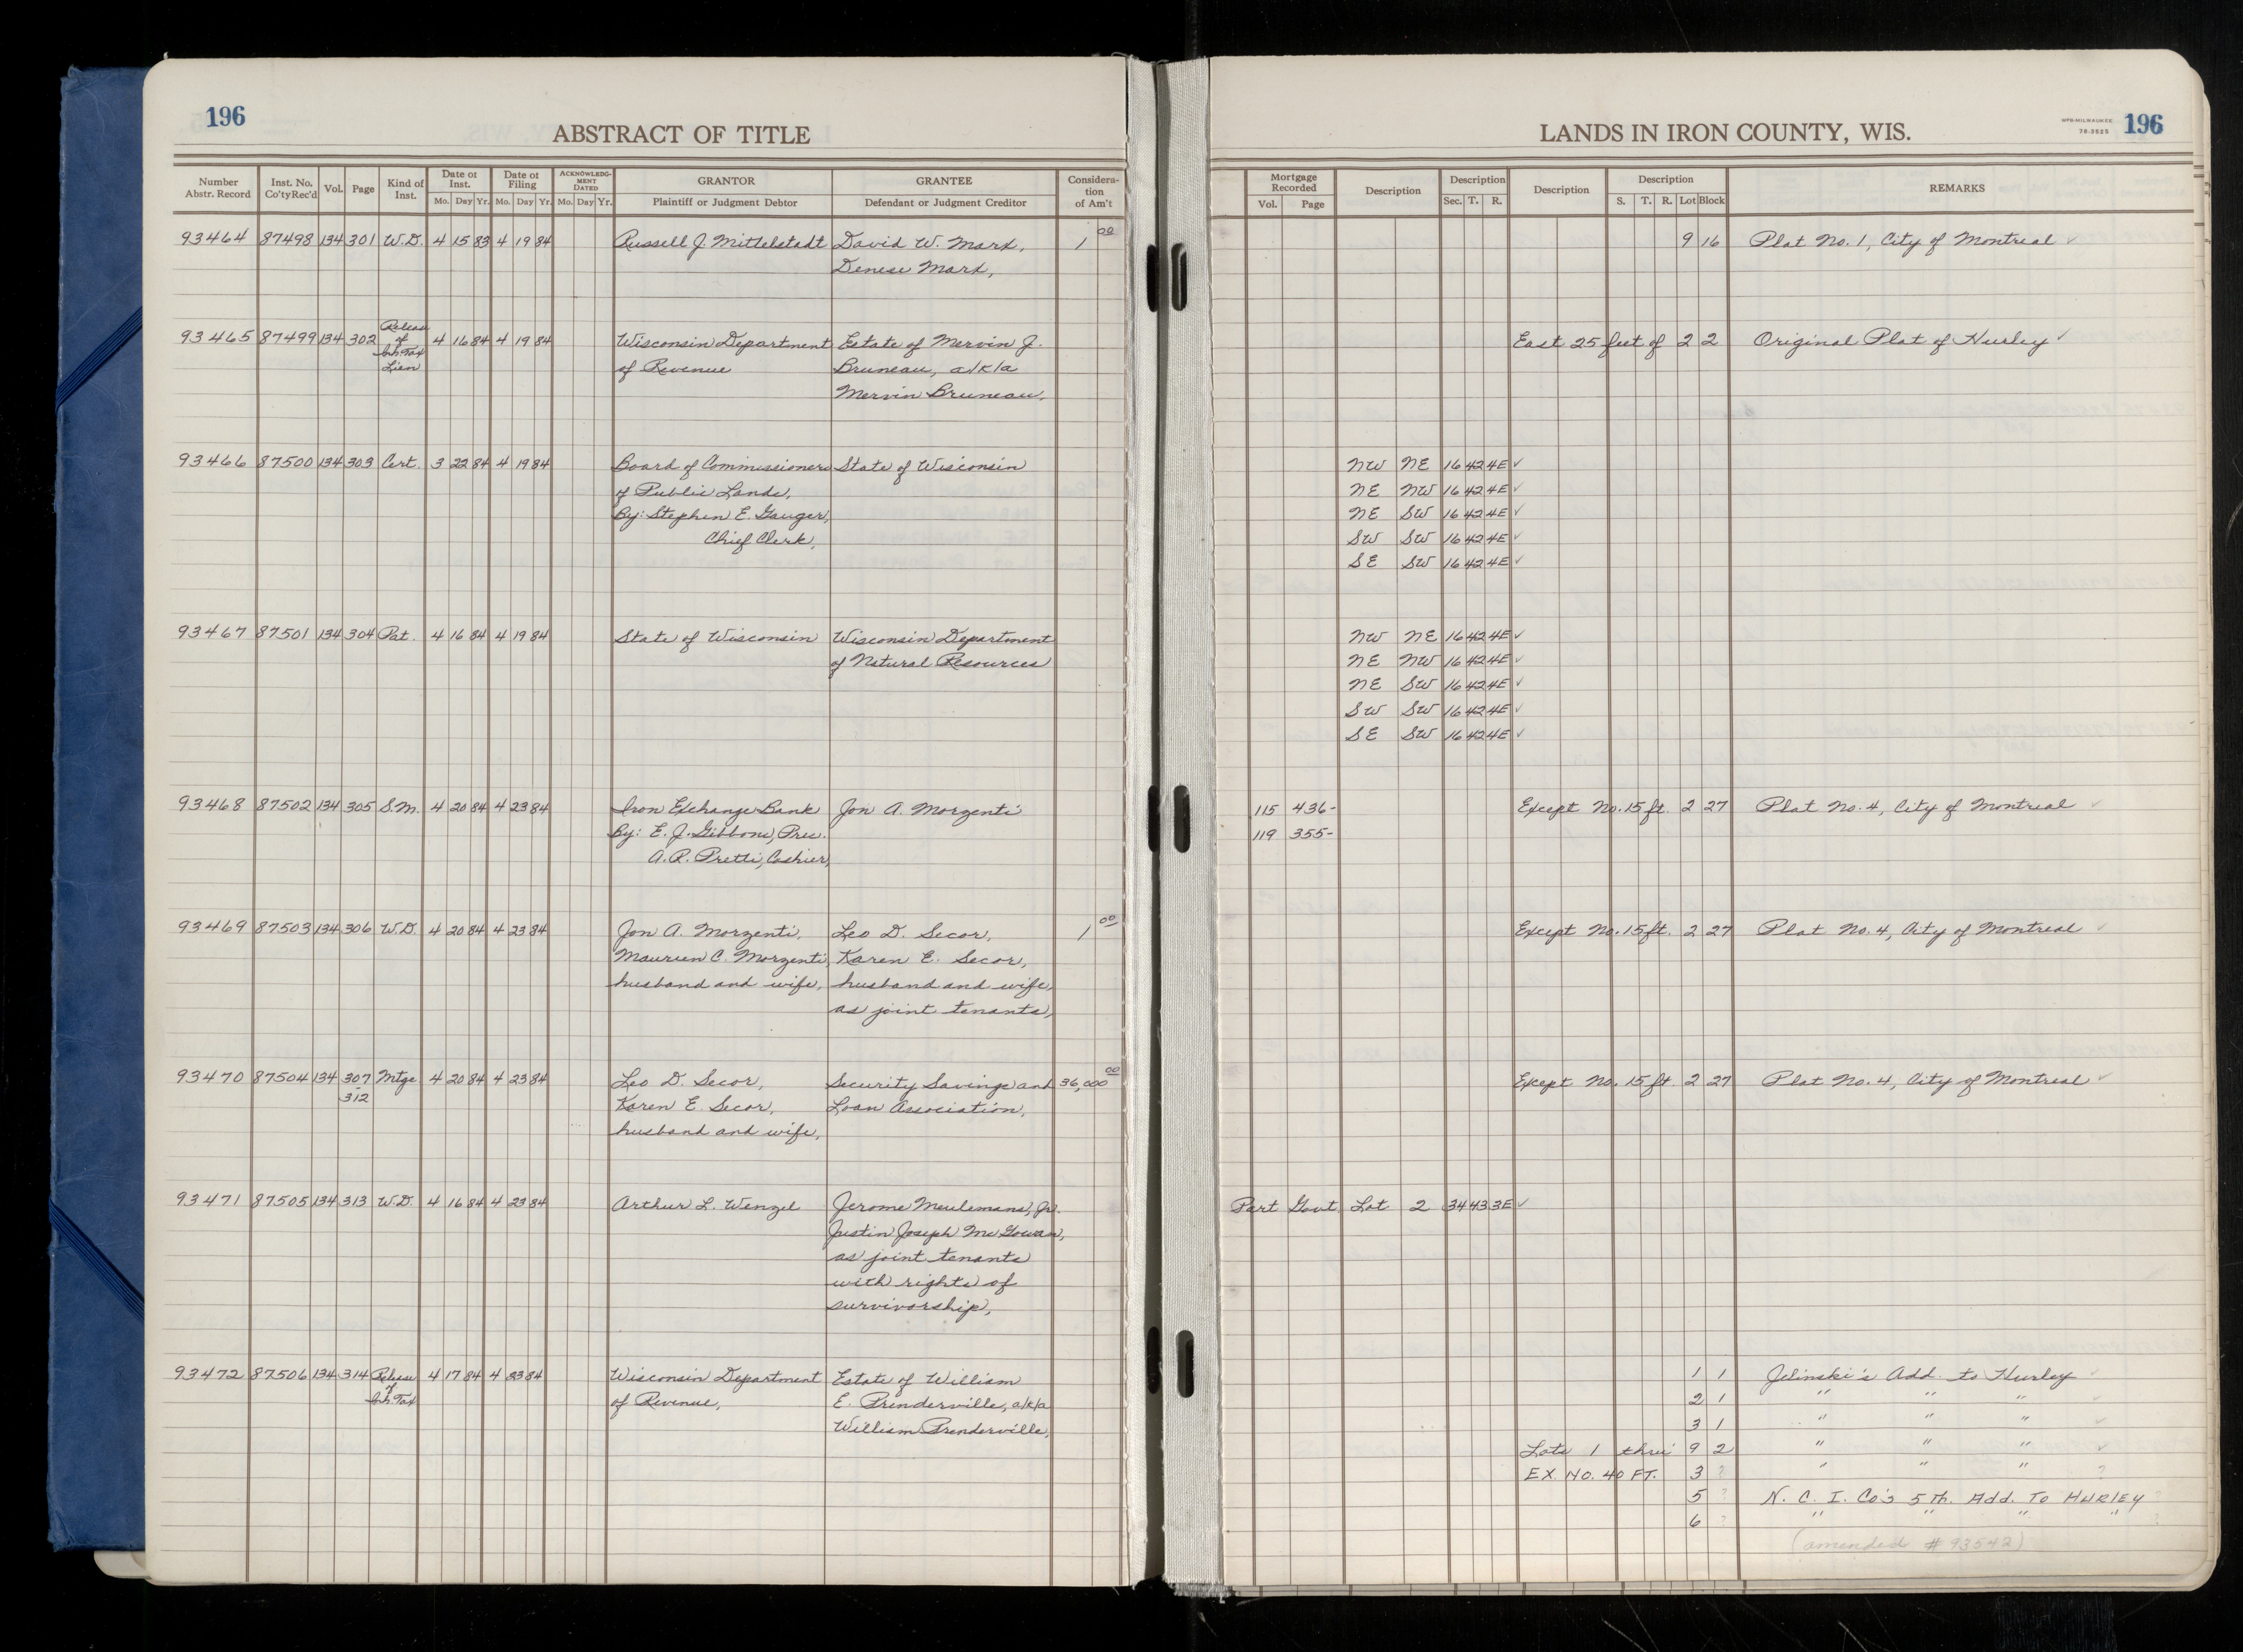 196
ABSTRACT OF TITLE
LANDS IN IRON COUNTY, WIS.
WPB-MILWAUKEE
78-3525
196
Number Abstr. Record Inst. No. Co'tyRec'd Vol. Page Kind of Inst. Date of Inst. Mo. Day Yr. Date of Filing Mo. Day Yr. ACKNOWLEDG-MENT DATED Mo. Day Yr. GRANTOR Plaintiff or Judgment Debtor GRANTEE Defendant or Judgment Creditor Considera-tion of Am't
Mortgage Recorded Vol. Page Description Description Sec. T. R. Description Description S. T. R. Lot Block REMARKS
93464 87498 134 301 W.D. 4 15 83 4 19 84 Russell J. Mittelstadt David W. Marx, 1 00 9 16 Plat No. 1, City of Montreal ✓
Denese Marx,
93465 87499 134 302 Release of Inh. Tax Lien 4 16 84 4 19 84 Wisconsin Department Estate of Mervin J. East 25 feet of 2 2 Original Plat of Hurley ✓
of Revenue Bruneau, a/k/a
Mervin Bruneau,
93466 87500 134 303 Cert. 3 22 84 4 19 84 Board of Commissioners State of Wisconsin NW NE 16 42 4E ✓
of Public Lands, NE NW 16 42 4E ✓
By: Stephen E. Gauger, NE SW 16 42 4E ✓
Chief Clerk, SW SW 16 42 4E ✓
SE SW 16 42 4E ✓
93467 87501 134 304 Pat. 4 16 84 4 19 84 State of Wisconsin Wisconsin Department NW NE 16 42 4E ✓
of Natural Resources NE NW 16 42 4E ✓
NE SW 16 42 4E ✓
SW SW 16 42 4E ✓
SE SW 16 42 4E ✓
93468 87502 134 305 S.M. 4 20 84 4 23 84 Iron Exchange Bank Jon A. Morzenti 115 436- Except No. 15 ft. 2 27 Plat No. 4, City of Montreal ✓
By: E. J. Gibbons, Pres. 119 355-
A. R. Pretti, Cashier,
93469 87503 134 306 W.D. 4 20 84 4 23 84 Jon A. Morzenti, Leo D. Secor, 1 00 Except No. 15 ft. 2 27 Plat No. 4, City of Montreal ✓
Maureen C. Morzenti, Karen E. Secor,
husband and wife, husband and wife,
as joint tenants,
93470 87504 134 307-312 Mtge 4 20 84 4 23 84 Leo D. Secor, Security Savings and 36,000 00 Except No. 15 ft 2 27 Plat No. 4, City of Montreal ✓
Karen E. Secor, Loan Association,
husband and wife,
93471 87505 134 313 W.D. 4 16 84 4 23 84 Arthur L. Wenzel Jerome Meulemans, Jr. Part Govt Lot 2 34 43 3E ✓
Justin Joseph McGowan,
as joint tenants
with rights of
survivorship,
93472 87506 134 314 Release of Inh. Tax 4 17 84 4 23 84 Wisconsin Department Estate of William 1 1 Jelinski's Add. to Hurley ✓
of Revenue, E. Prenderville, a/k/a 2 1 " " " ✓
William Prenderville, 3 1 " " " ✓
Lots 1 thru 9 2 " " " ✓
EX NO. 40 FT. 3 ? " " " ?
5 ? N. C. I. Co's 5th. Add. To HURLEY
6 ? " " " "
(amended # 93542)